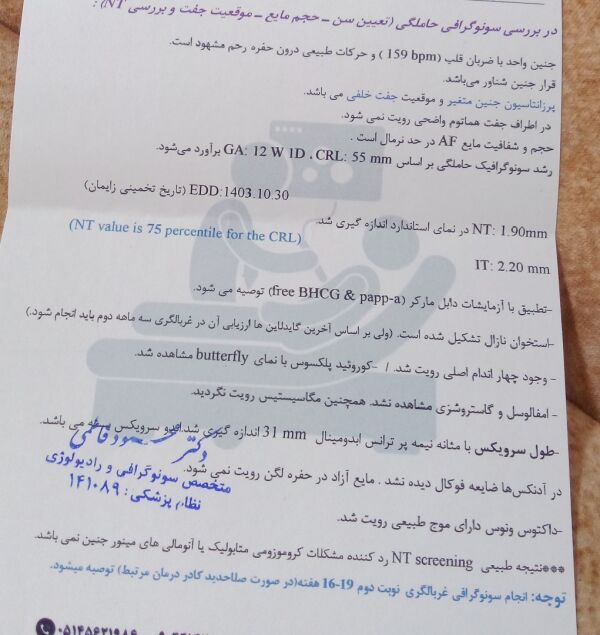 در بررسی سونوگرافی حاملگی (تعیین سن - حجم مایع - موقعیت جفت و بررسی NT) :
جنین واحد با ضربان قلب (159 bpm ) و حرکات طبیعی درون حفره رحم مشهود است.
قرار جنین شناور می‌باشد.
پرزانتاسیون جنین متغیر و موقعیت جفت خلفی می باشد.
در اطراف جفت هماتوم واضحی رویت نمی شود.
حجم و شفافیت مایع AF در حد نرمال است .
رشد سونوگرافیک حاملگی بر اساس GA: 12 W 1D ، CRL: 55 mm برآورد می‌شود.
EDD:1403.10.30 (تاریخ تخمینی زایمان)
NT: 1.90mm در نمای استاندارد اندازه گیری شد.
(NT value is 75 percentile for the CRL)
IT: 2.20 mm
-تطبیق با آزمایشات دابل مارکر (free BHCG & papp-a) توصیه می شود.
-استخوان نازال تشکیل شده است. (ولی بر اساس آخرین گایدلاین ها ارزیابی آن در غربالگری سه ماهه دوم باید انجام شود.)
- وجود چهار اندام اصلی رویت شد. / -کوروئید پلکسوس با نمای butterfly مشاهده شد.
- امفالوسل و گاستروشزی مشاهده نشد. همچنین مگاسیستیس رویت نگردید.
-طول سرویکس با مثانه نیمه پر ترانس ابدومینال 31 mm اندازه گیری شد. و سرویکس بسته می باشد.
در آدنکس‌ها ضایعه فوکال دیده نشد . مایع آزاد در حفره لگن رویت نمی شود.
-داکتوس ونوس دارای موج طبیعی رویت شد.
دکتر
متخصص سونوگرافی و رادیولوژی
نظام پزشکی: ۱۴۱۰۸۹
***نتیجه طبیعی NT screening رد کننده مشکلات کروموزومی متابولیک یا آنومالی های مینور جنین نمی باشد.
توجه: انجام سونوگرافی غربالگری نوبت دوم 19-16 هفته(در صورت صلاحدید کادر درمان مرتبط) توصیه میشود.